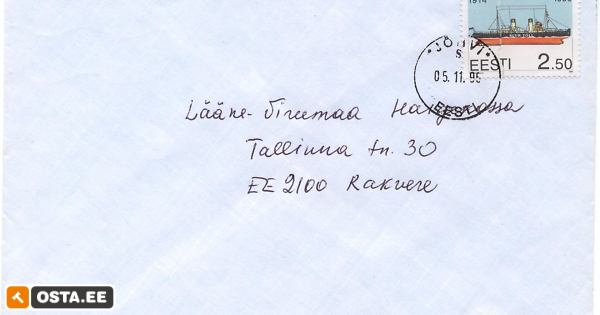 1914
JÕHVI
S
05.11.95
EESTI
EESTI 2.50
Lääne-Virumaa Haigekassa
Tallinna tn. 30
EE 2100 Rakvere
OSTA.EE